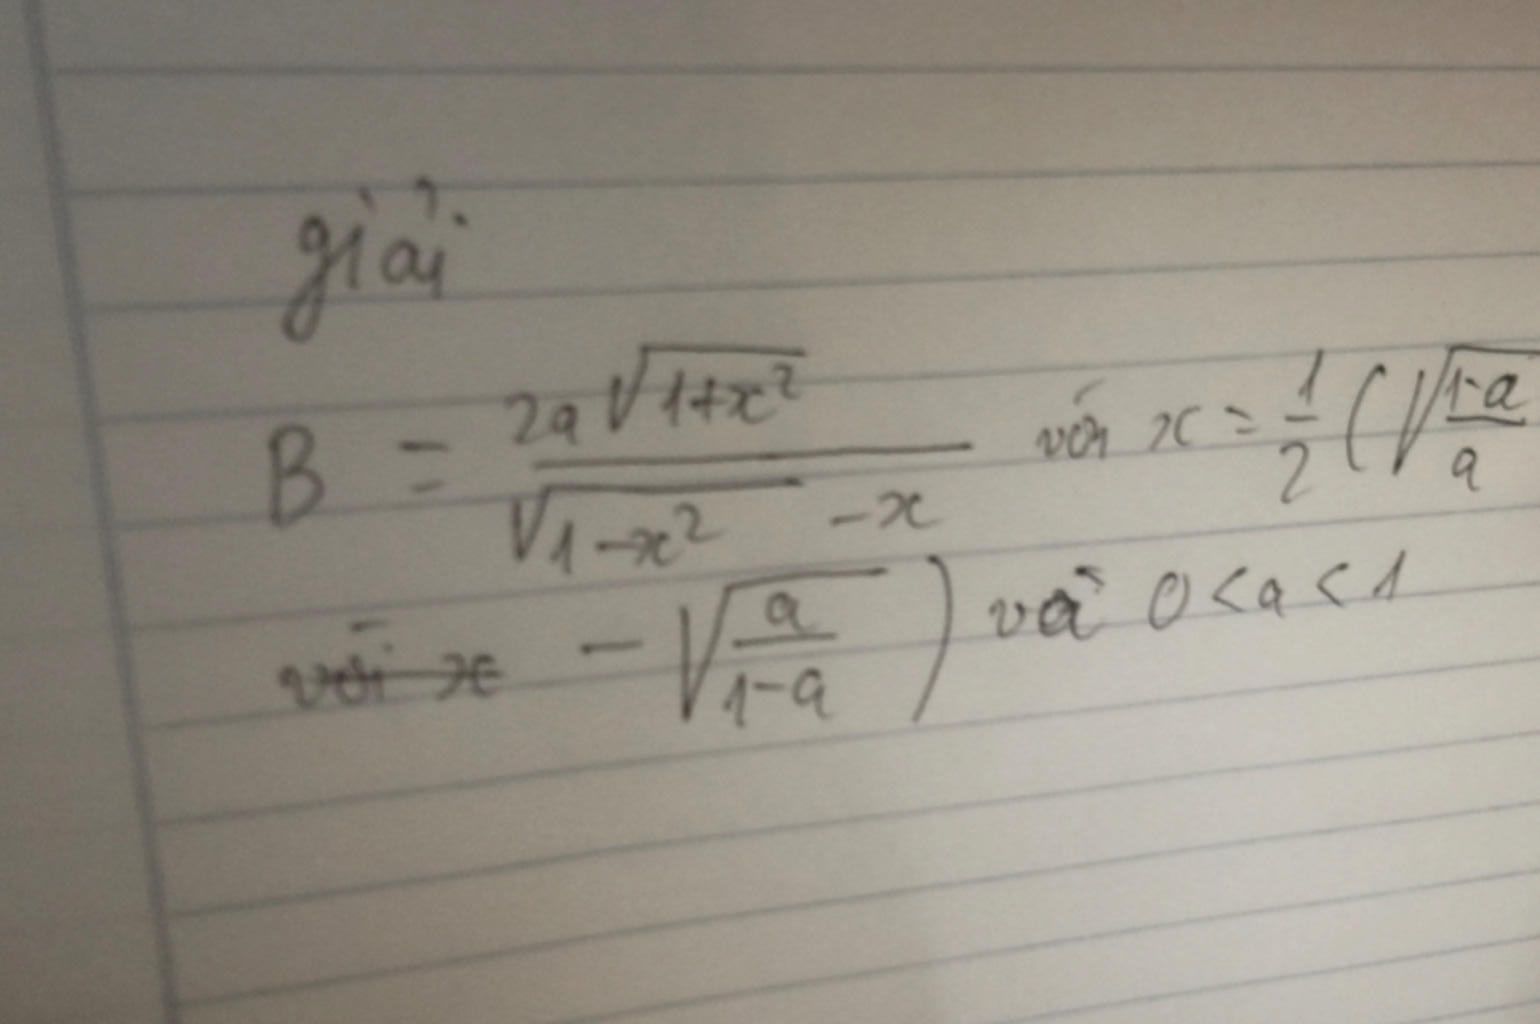 giải
B = 2a√(1+x²) / (√(1-x²) - x) với x = 1/2 (√((1-a)/a)
với x - √(a/(1-a))) và 0 < a < 1